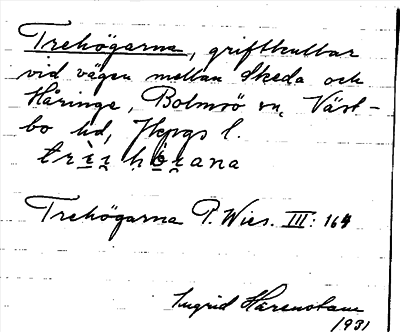 Trehögarna, griftkullar
vid vägen mellan Skeda och
Håringe, Bolmsö sn, Väst-
bo hd, Jkpgs l.
Trehögarna P. Wies. III: 164
Ingrid Harenstam
1931